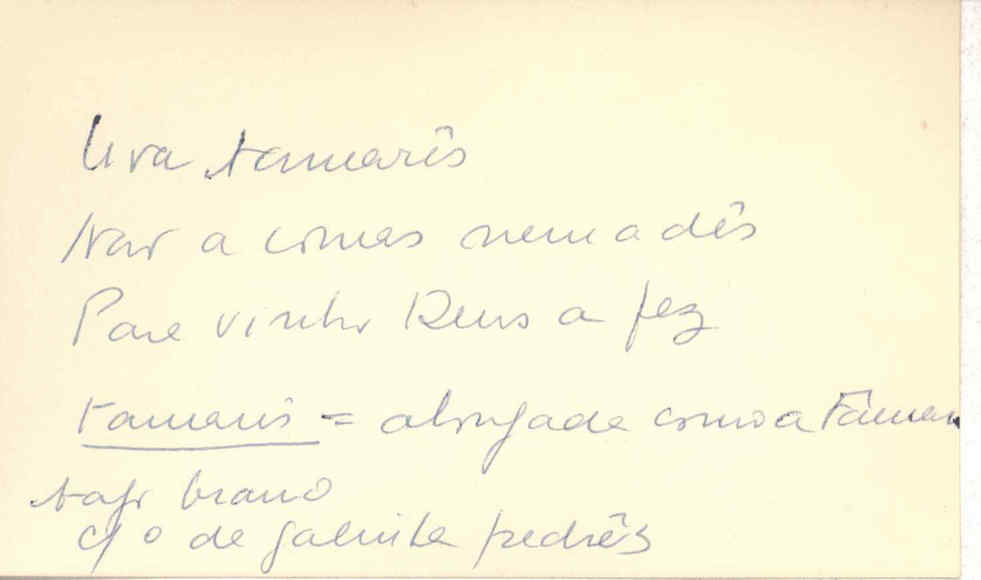 Uva tamarês
Não a comas nem a dês
Para vinho Deus a fez
tamarês = alongada como a Tâmara
bago branco
c/ o de galinha pedrês